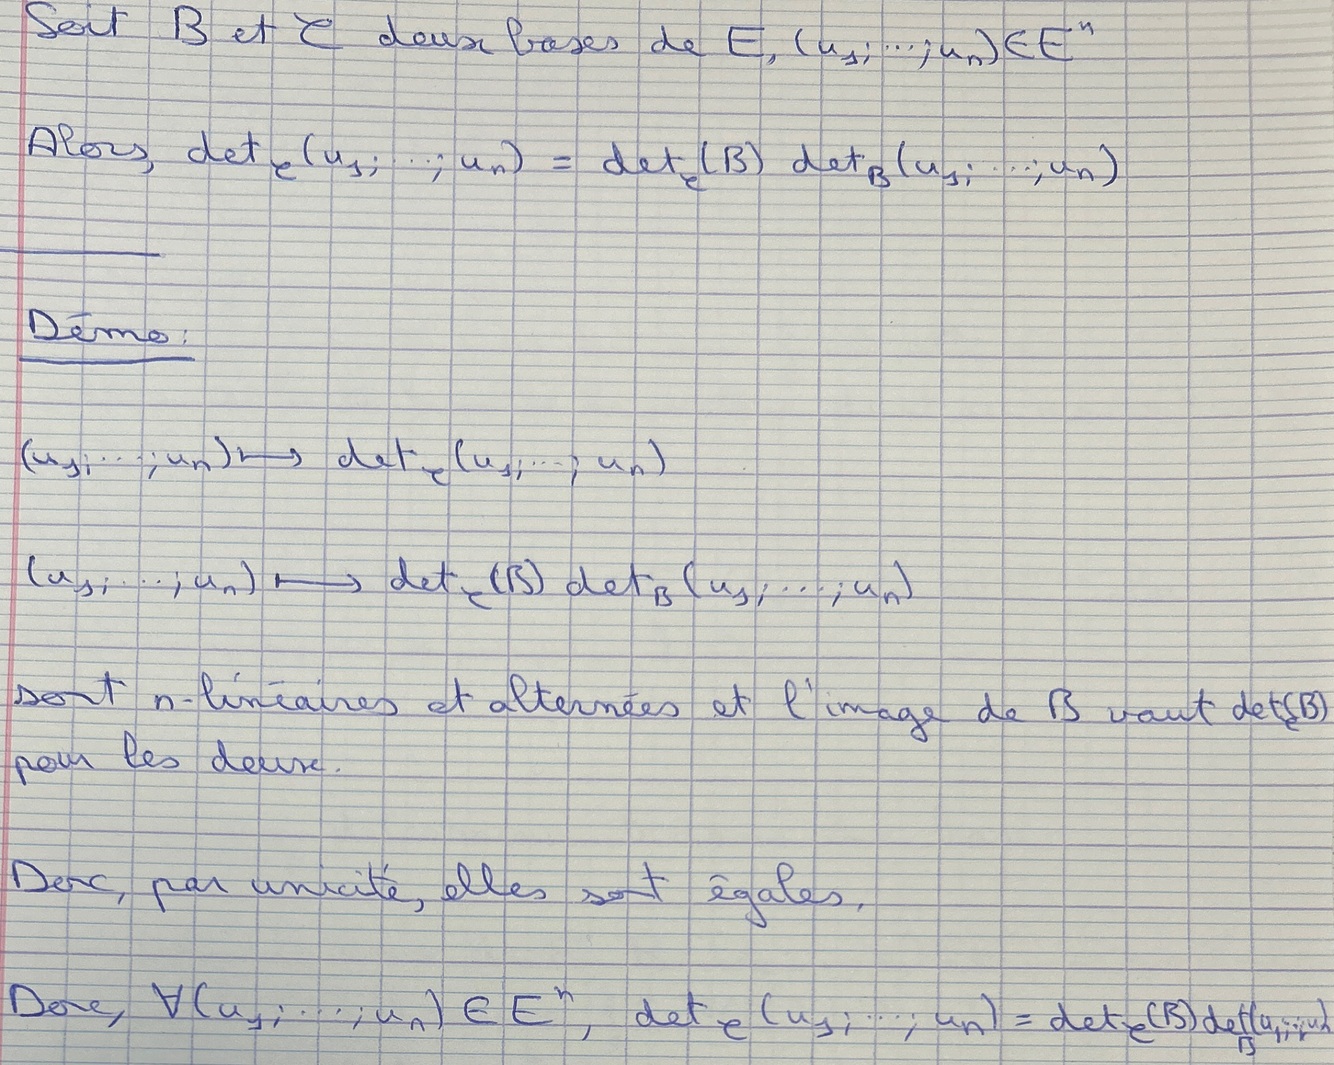 Soit B et C deux bases de E, (u₁; ...; uₙ) ∈ Eⁿ
Alors, det_C (u₁; ...; uₙ) = det_C (B) det_B (u₁; ...; uₙ)
Démo:
(u₁; ...; uₙ) ⟼ det_C (u₁; ...; uₙ)
(u₁; ...; uₙ) ⟼ det_C (B) det_B (u₁; ...; uₙ)
sont n-linéaires et alternées et l'image de B vaut det_C (B)
pour les deux.
Donc, par unicité, elles sont égales.
Donc, ∀(u₁; ...; uₙ) ∈ Eⁿ, det_C (u₁; ...; uₙ) = det_C (B) det_B (u₁; ...; uₙ)